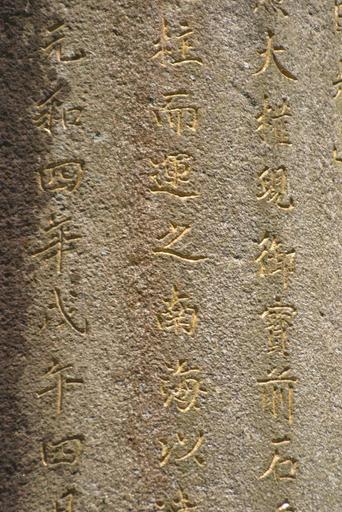 大權現御寶前石
柱而運之南海以
元和四年戊午四月